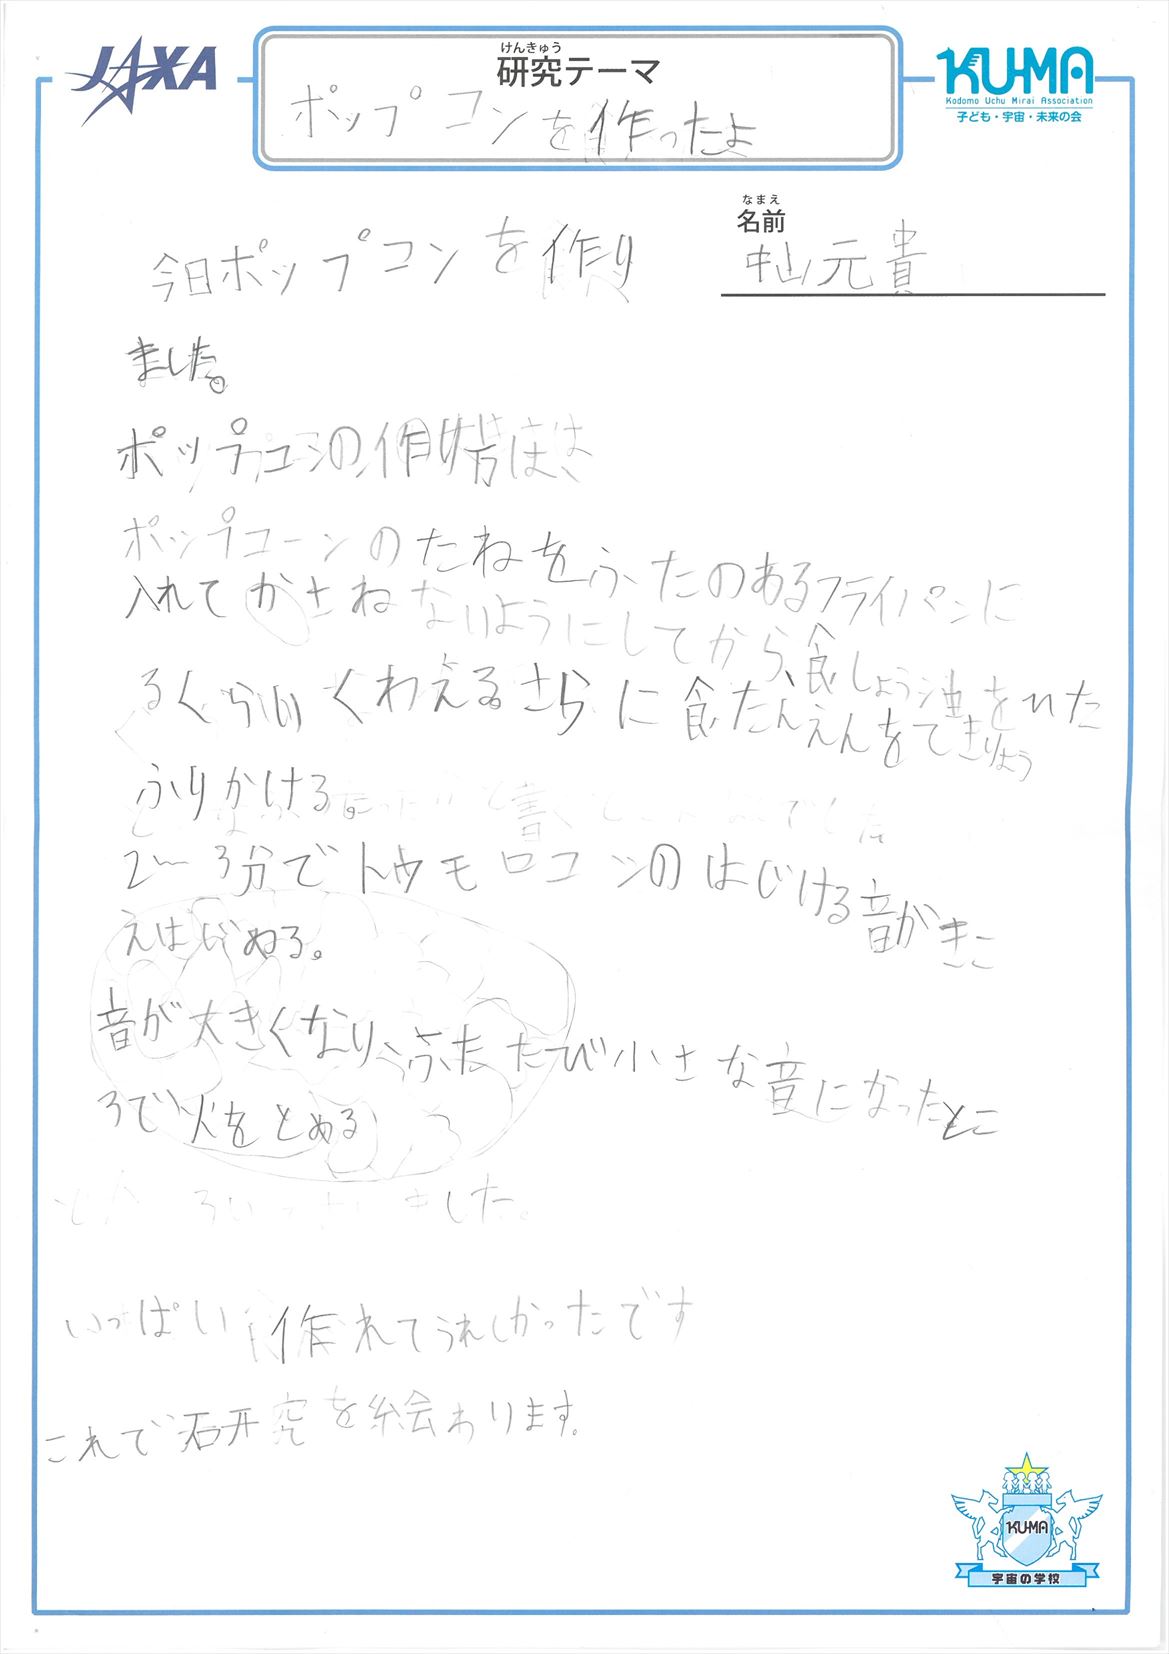 JAXA
けんきゅう
研究テーマ
ポップコンを作ったよ
KU-MA
Kodomo Uchu Mirai Association
子ども・宇宙・未来の会
なまえ
名前
中山元貴
今日ポップコンを作り
ました。
ポップコンの作
ポップコーンのたねをふたのあるフライパンに
入れてかさねないようにしてから、食しょう油を入れた
るくらいくわえるさらに食たんえんをてきりょう
ふりかける。
2〜3分でトウモロコシのはじける音がきこ
えはじめる。
音が大きくなり、ふたたび小さな音になったとこ
ろで火をとめる
ました。
いっぱい作れてうれしかったです
これで研究を終わります。
KU-MA
宇宙の学校